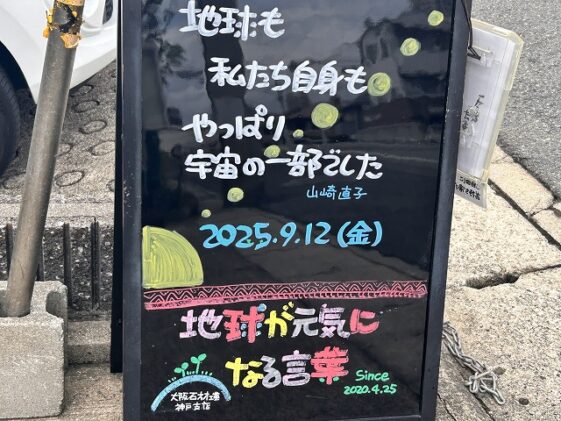 地球も
私たち自身も
やっぱり
宇宙の一部でした
山崎直子
2025.9.12(金)
地球が元気に
なる言葉
Since
2020.4.25
神戸支店